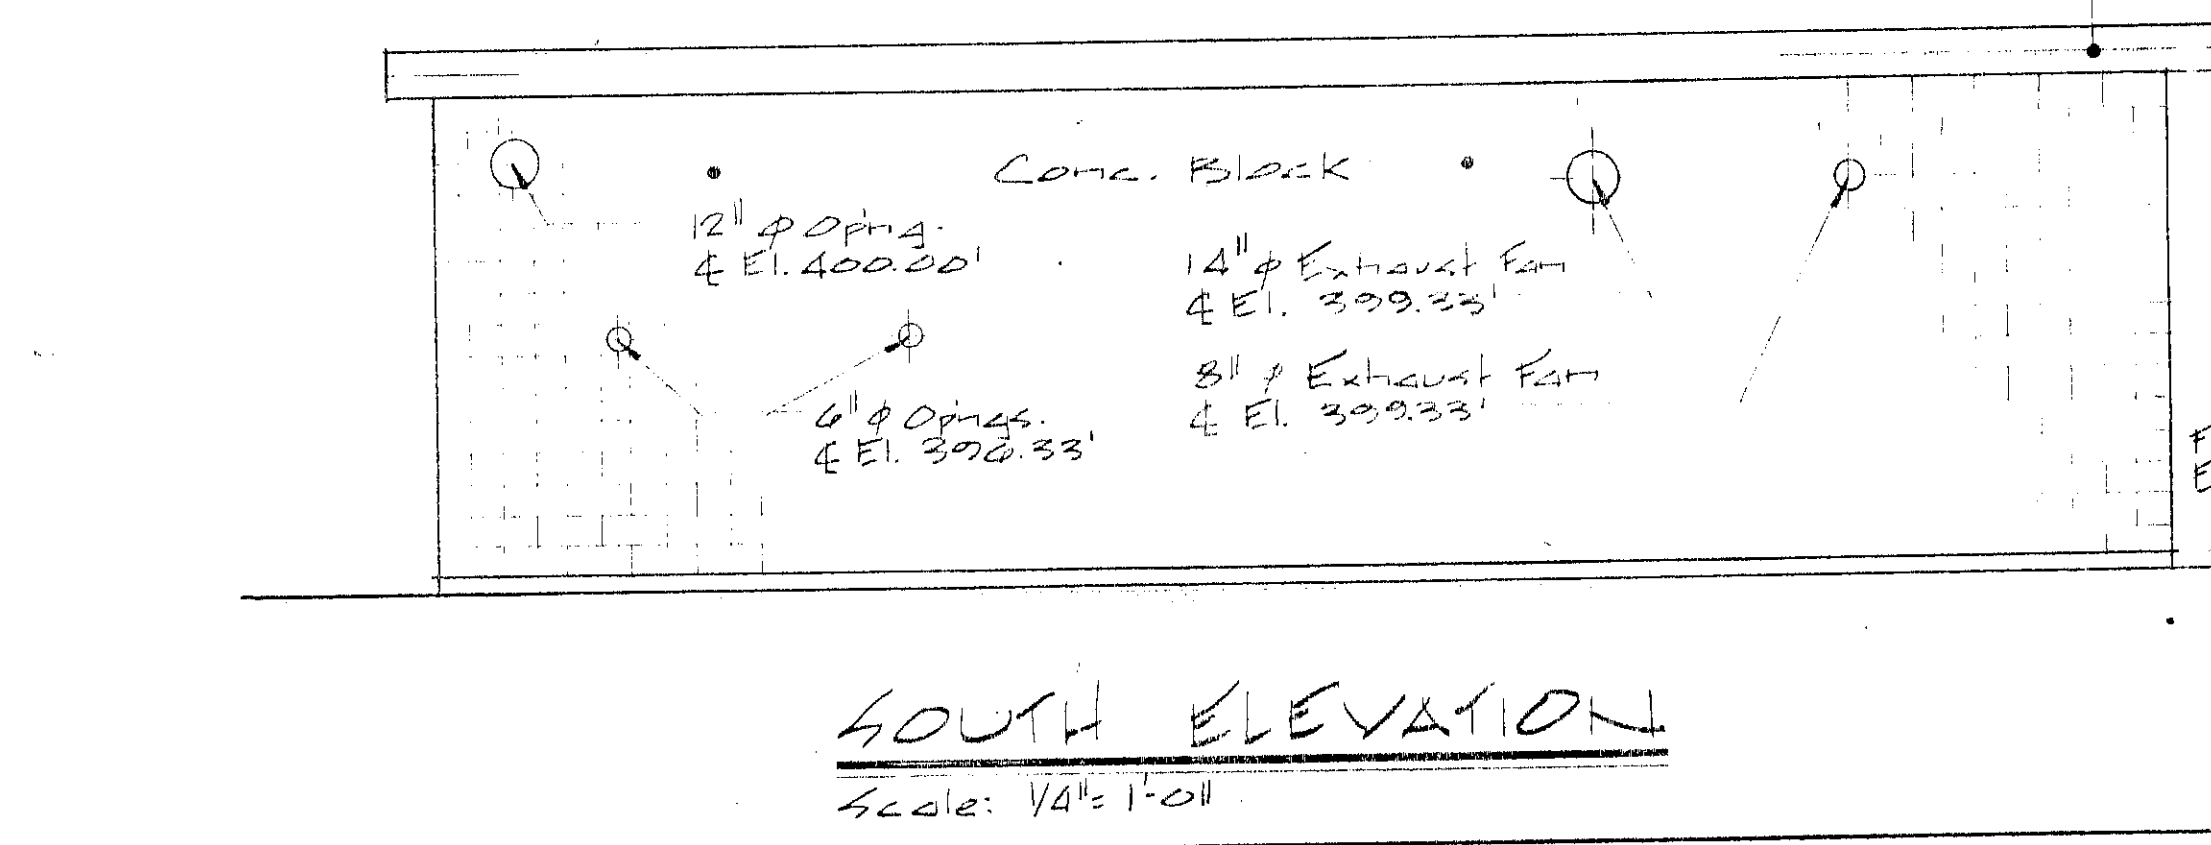 Conc. Block
12" ϕ Opng.
℄ El. 400.00'
14" ϕ Exhaust Fan
℄ El. 399.33'
8" ϕ Exhaust Fan
℄ El. 399.33'
6" ϕ Opngs.
℄ El. 396.33'
SOUTH ELEVATION
Scale: 1/4" = 1'-0"